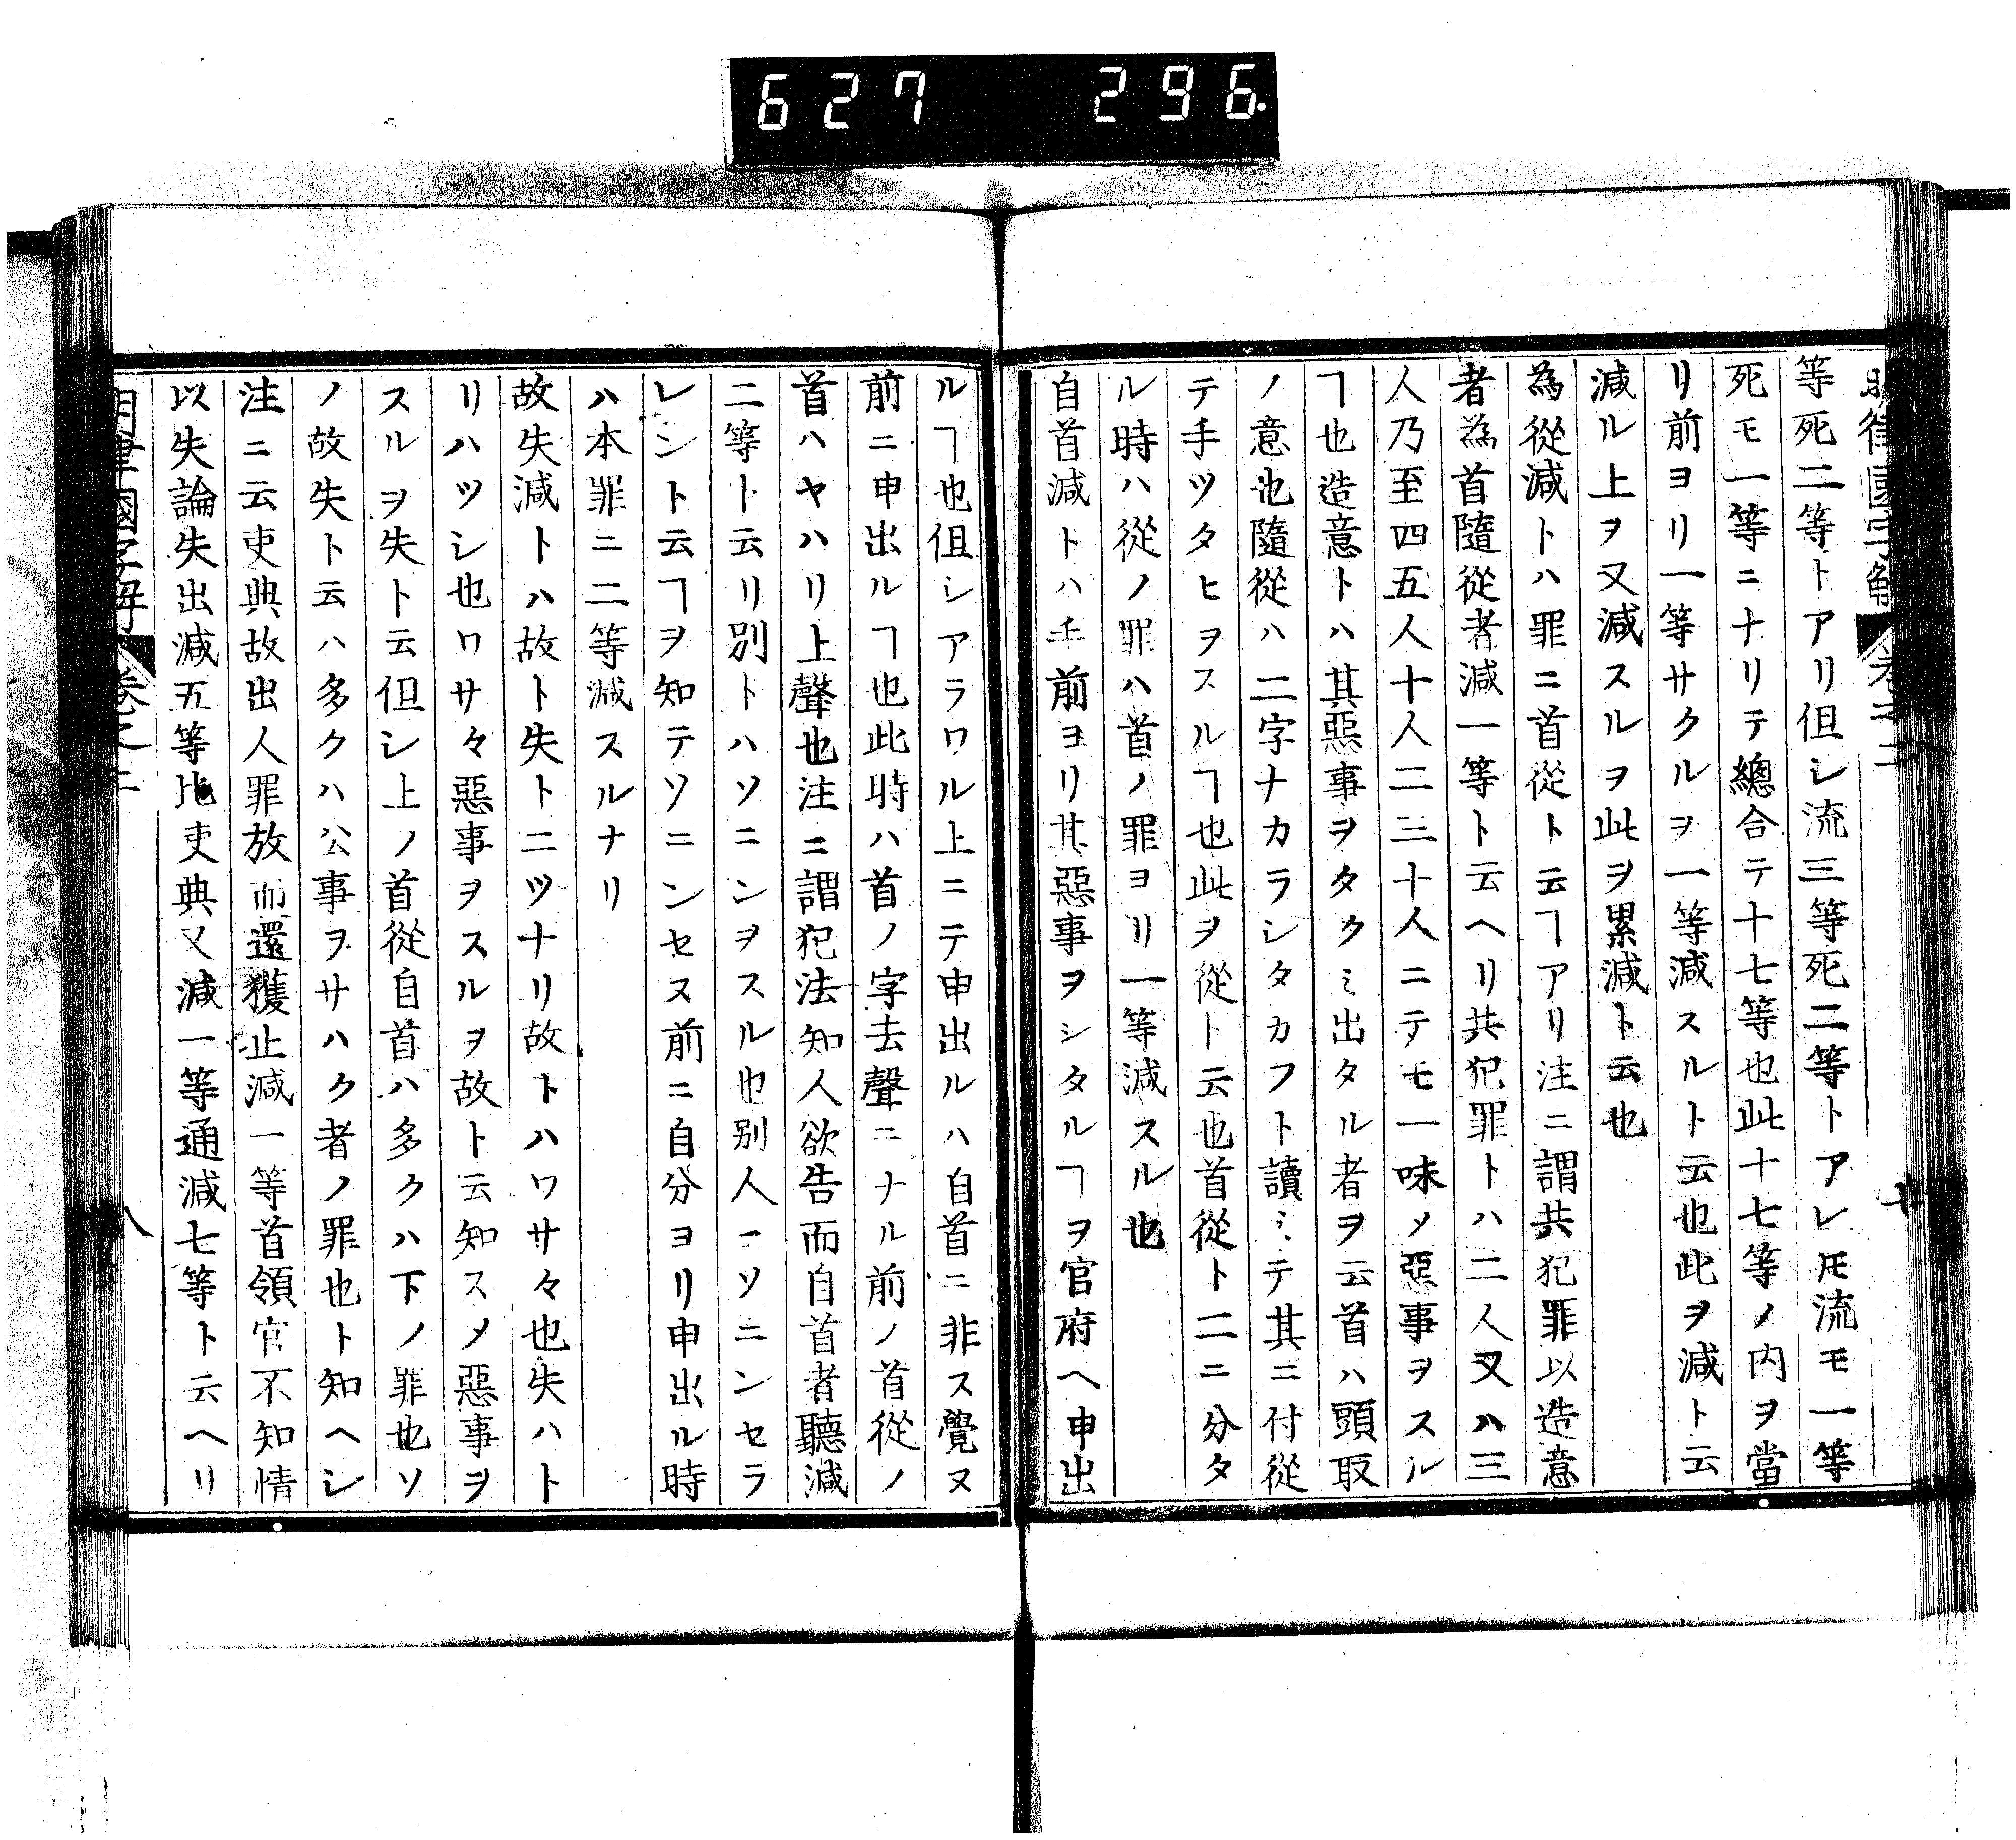 627 296
等死二等トアリ但シ流三等死二等トアレ𪜈流モ一等
死モ一等ニナリテ總合テ十七等也此十七等ノ内ヲ當
リ前ヨリ一等サクルヲ一等減スルト云也此ヲ減ト云
減ル上ヲ又減スルヲ此ヲ累減ト云也
為從減トハ罪ニ首從ト云ヿアリ注ニ謂共犯罪以造意
者為首隨從者減一等ト云ヘリ共犯罪トハ二人又ハ三
人乃至四五人十人二三十人ニテモ一味メ惡事ヲスル
ヿ也造意トハ其惡事ヲタクミ出タル者ヲ云首ハ頭取
ノ意也隨從ハ二字ナカラシタカフト讀ミテ其ニ付從
テ手ツタヒヲスルヿ也此ヲ從ト云也首從ト二ニ分タ
ル時ハ從ノ罪ハ首ノ罪ヨリ一等減スル也
自首減トハ手前ヨリ其惡事ヲシタルヿヲ官府ヘ申出
ルヿ也但シアラワル上ニテ申出ルハ自首ニ非ス覺ヌ
前ニ申出ルヿ也此時ハ首ノ字去聲ニナル前ノ首從ノ
首ハヤハリ上聲也注ニ謂犯法知人欲告而自首者聽減
二等ト云リ別トハソニンヲスル也別人ーソニンセラ
レント云ヿヲ知テソニンセヌ前ニ自分ヨリ申出ル時
ハ本罪ニ二等減スルナリ
故失減トハ故ト失ト二ツナリ故トハワサ々也失ハト
リハツシ也ワサ々惡事ヲスルヲ故ト云知スメ惡事ヲ
スルヲ失ト云但シ上ノ首從自首ハ多クハ下ノ罪也ソ
ノ故失ト云ハ多クハ公事ヲサハク者ノ罪也ト知ヘシ
注ニ云吏典故出人罪放而還獲止減一等首領官不知情
以失論失出減五等比吏典又減一等通減七等ト云ヘリ
明律國字解 卷之二 八